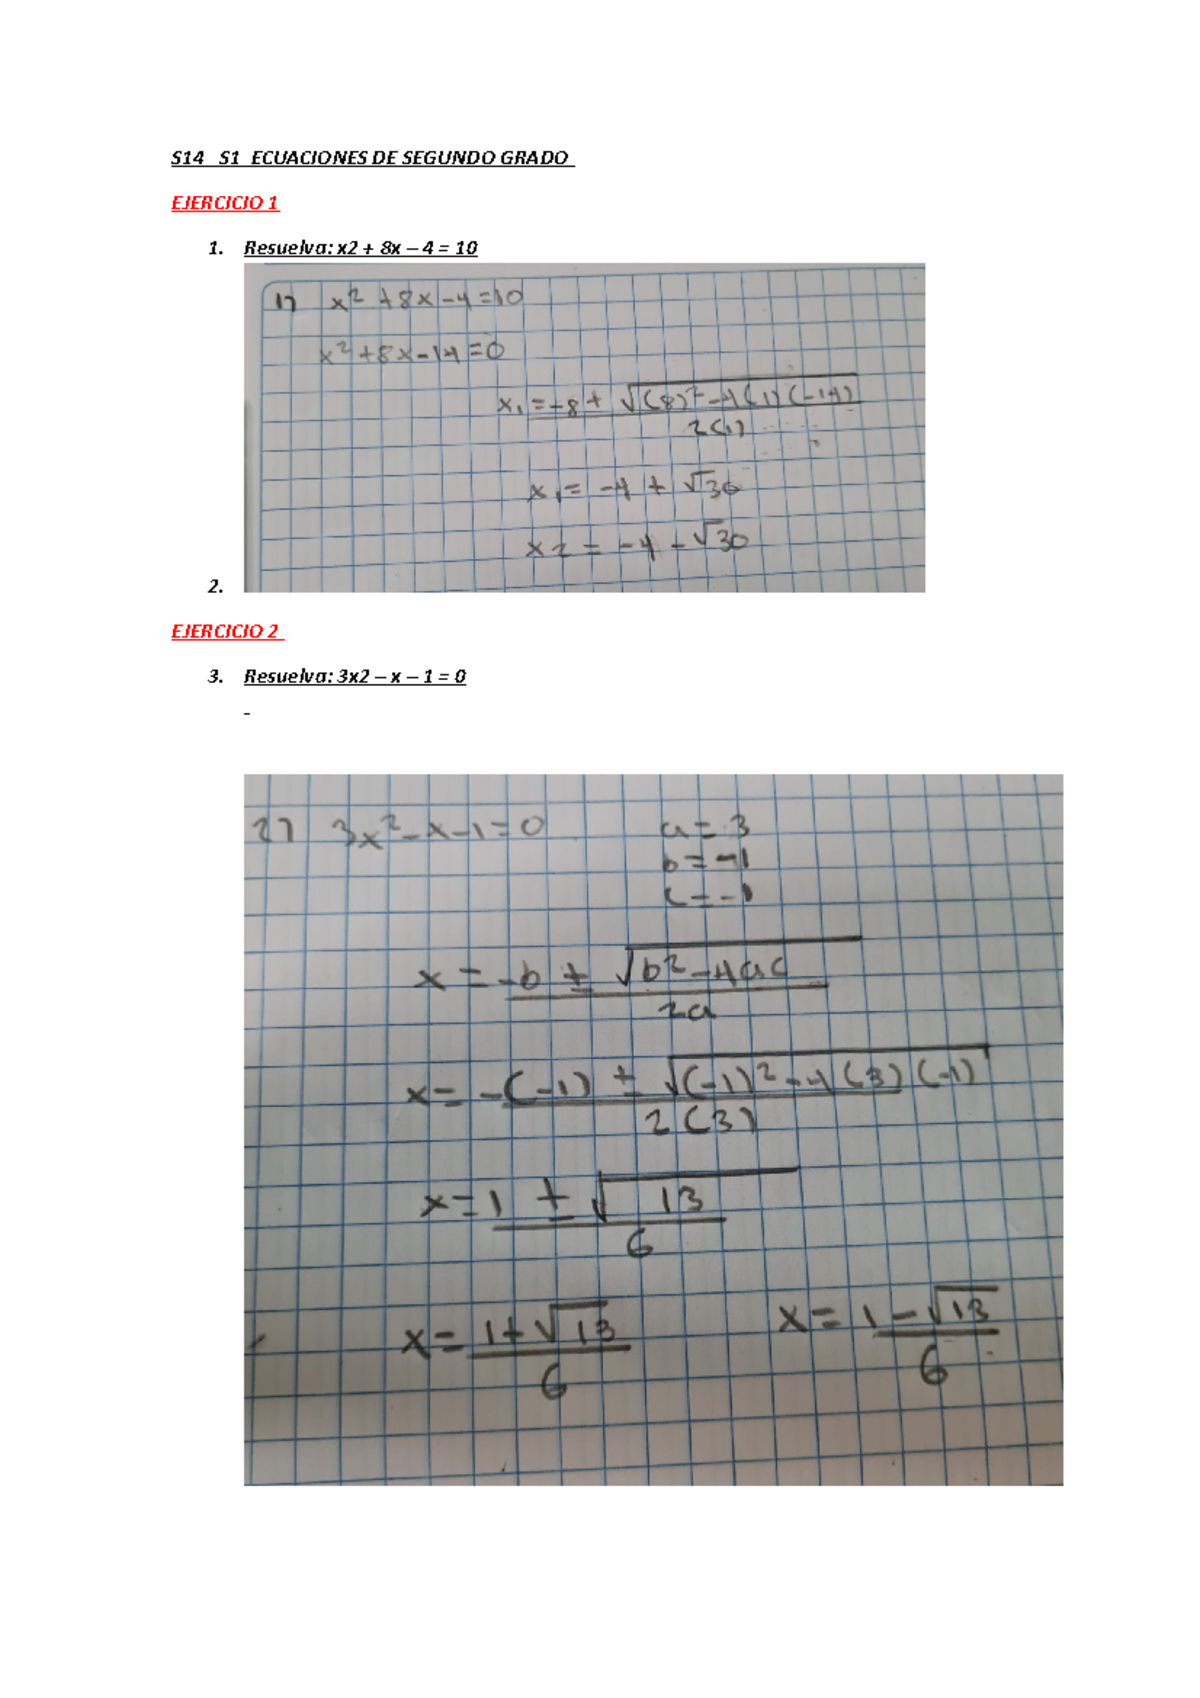 S14 S1 ECUACIONES DE SEGUNDO GRADO
EJERCICIO 1
1. Resuelva: x2 + 8x – 4 = 10
1) x² + 8x - 4 = 10
x² + 8x - 14 = 0
x₁ = -8 + √(8)² - 4(1)(-14)
2(1)
x₁ = -4 + √30
x2 = -4 - √30
2.
EJERCICIO 2
3. Resuelva: 3x2 – x – 1 = 0
-
2) 3x² - x - 1 = 0
a = 3
b = -1
c = -1
x = -b ± √b² - 4ac
2a
x = -(-1) ± √(-1)² - 4(3)(-1)
2(3)
x = 1 ± √13
6
x = 1 + √13
6
x = 1 - √13
6